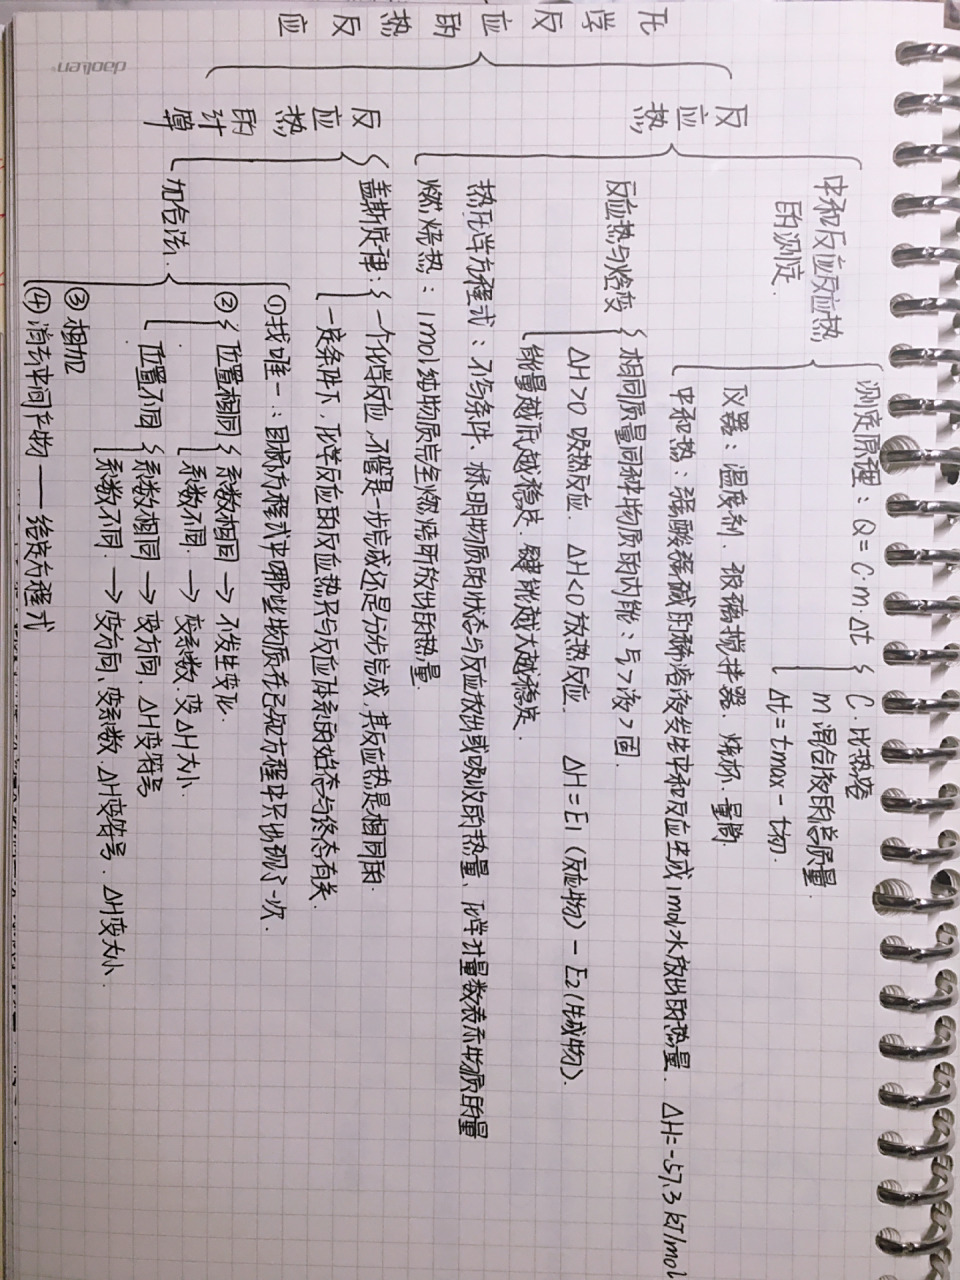 化学反应的热反应
daolen
反应热
中和反应反应热
的测定.
测定原理:Q=C·m·Δt
C.比热容
m 混合液的总质量.
Δt=tmax-t初.
仪器:温度剂.玻璃搅拌器.烧杯.量筒.
中和热:强酸强碱的稀溶液发生中和反应生成1mol水放出的热量. ΔH=-57.3 kJ/mol
反应热与焓变
相同质量同种物质的内能:气>液>固.
ΔH>0 吸热反应. ΔH<0放热反应. ΔH=E1(反应物)-E2(生成物).
能量越低越稳定.键能越大越稳定.
热化学方程式:不写条件、标明物质的状态与反应放出或吸收的热量、化学计量数表示物质的量
燃烧热:1mol纯物质完全燃烧所放出的热量.
反应热的计算
盖斯定律:
一个化学反应,不管是一步完成还是分步完成,其反应热是相同的.
一定条件下,化学反应的反应热只与反应体系的始态与终态有关.
加合法.
①找唯一:目标方程式中哪些物质在已知方程中只出现了一次.
②
位置相同
系数相同→不发生变化.
系数不同.→变系数.变ΔH大小.
位置不同
系数相同→变方向.ΔH变符号
系数不同.→变方向、变系数.ΔH变符号.ΔH变大小.
③相加
④消去中间产物——给定方程式